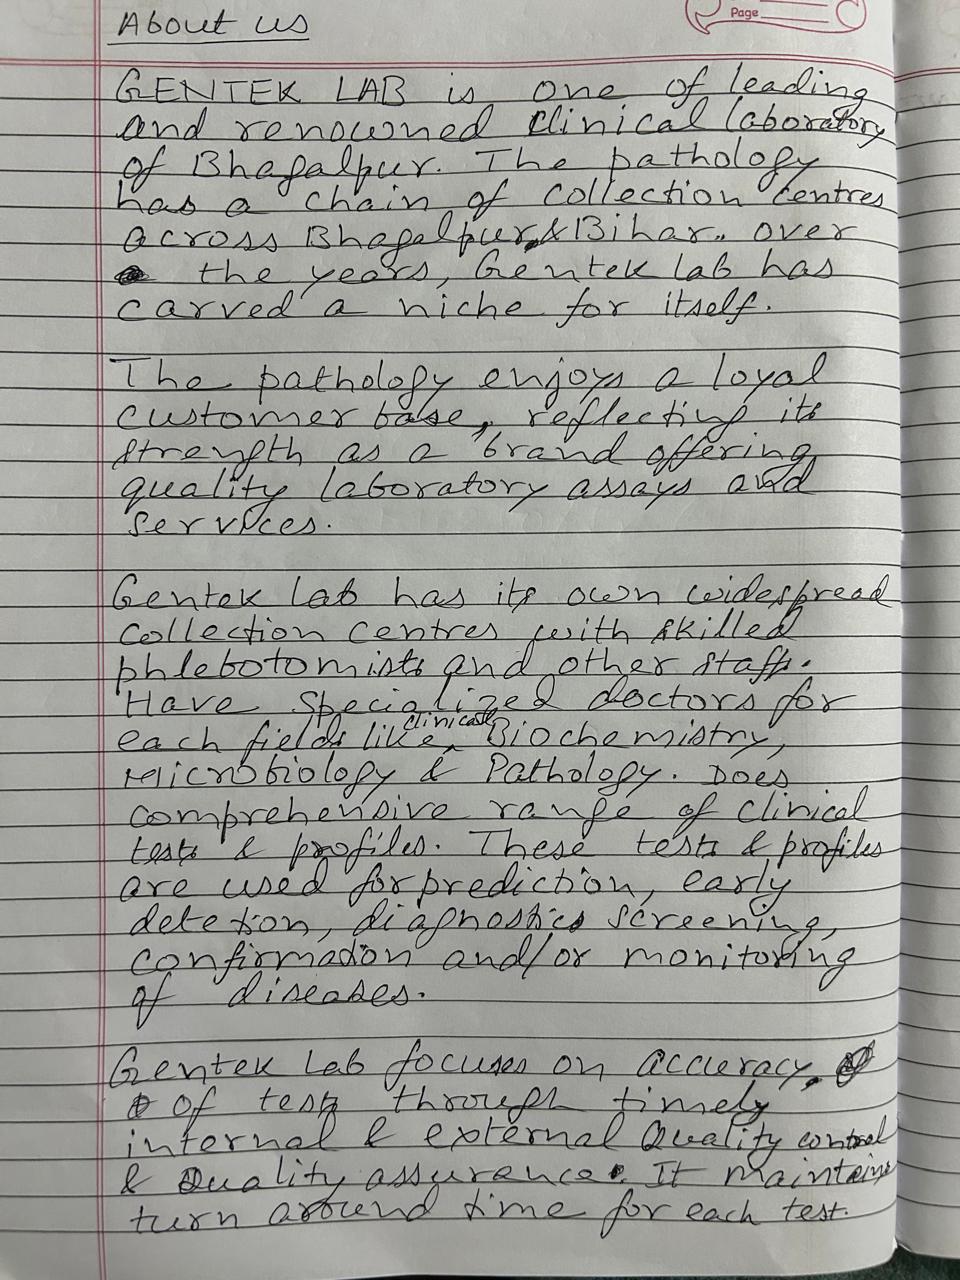 Page
About us
GENTEK LAB is one of leading
and renowned clinical laboratory
of Bhagalpur. The pathology
has a chain of collection centres
across Bhagalpur & Bihar. over
the years, Gentek lab has
carved a niche for itself.
The pathology enjoys a loyal
customer base, reflecting its
strength as a brand offering
quality laboratory assays and
services.
Gentek Lab has its own widespread
collection centres with skilled
phlebotomists and other staff.
Have specialized doctors for
each fields like, clinical Biochemistry,
Microbiology & Pathology. Does
comprehensive range of clinical
tests & profiles. These tests & profiles
are used for prediction, early
detetion, diagnostics screening,
confirmation and/or monitoring
of diseases.
Gentek Lab focuses on accuracy
of tests through timely
internal & external Quality control
& Quality assurance. It maintains
turn around time for each test.